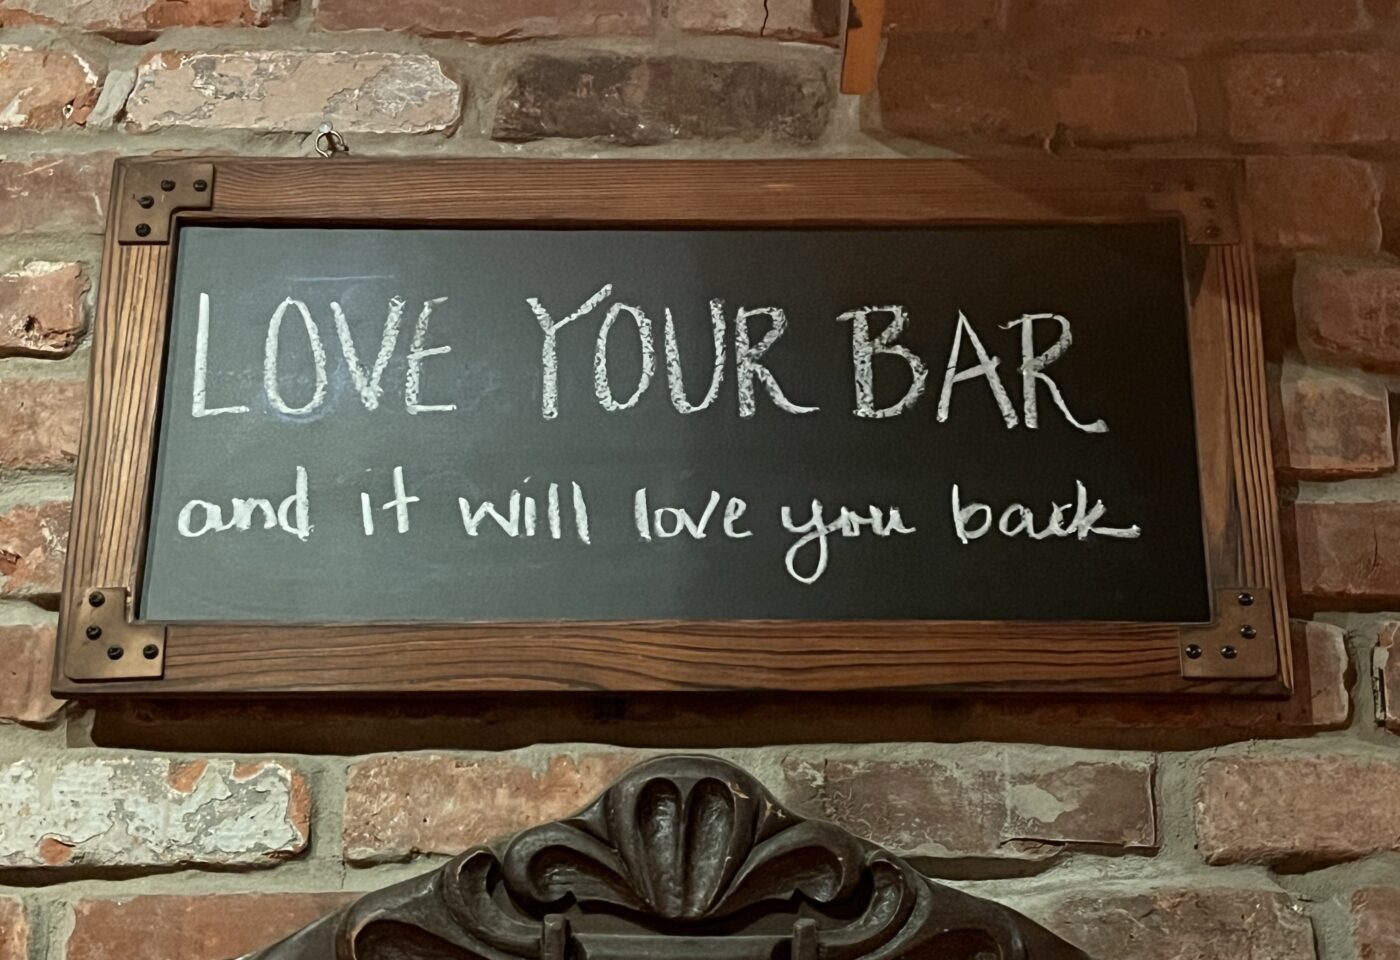 LOVE YOUR BAR
and it will love you back